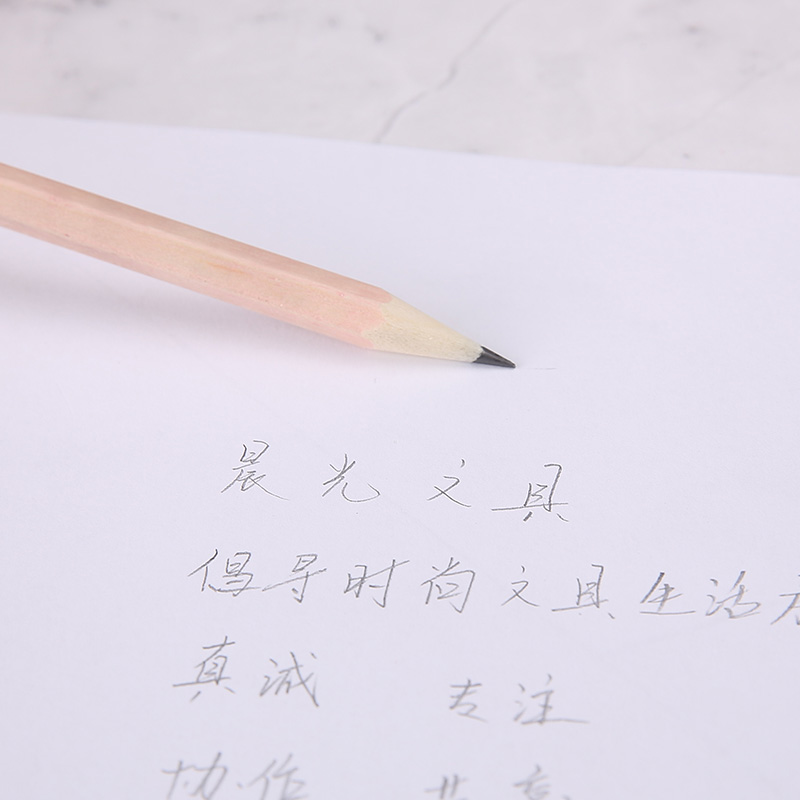 晨光文具
倡导时尚文具生活
真诚 专注
协作